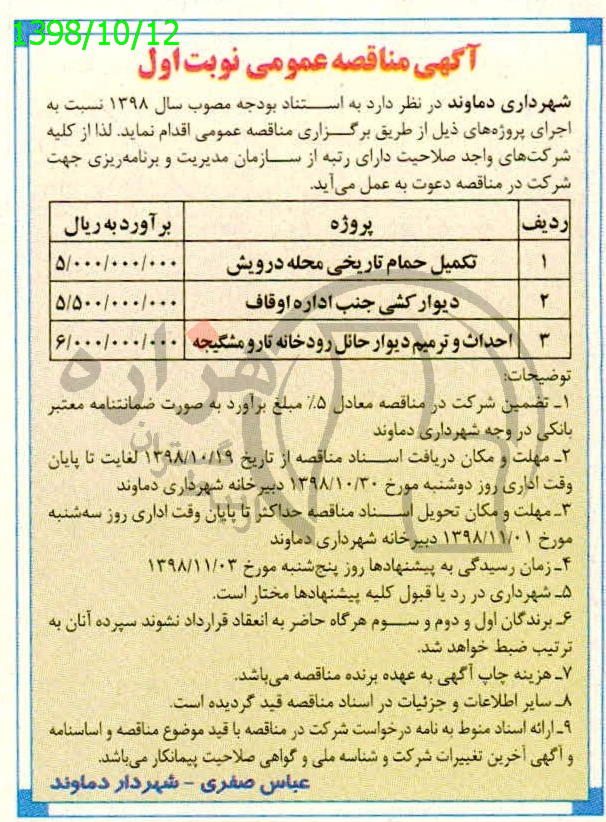 1398/10/12
آگهی مناقصه عمومی نوبت اول
شهرداری دماوند در نظر دارد به استناد بودجه مصوب سال ۱۳۹۸ نسبت به
اجرای پروژه‌های ذیل از طریق برگزاری مناقصه عمومی اقدام نماید. لذا از کلیه
شرکت‌های واجد صلاحیت دارای رتبه از سازمان مدیریت و برنامه‌ریزی جهت
شرکت در مناقصه دعوت به عمل می‌آید.
ردیف پروژه برآورد به ریال
۱ تکمیل حمام تاریخی محله درویش ۵/۰۰۰/۰۰۰/۰۰۰
۲ دیوارکشی جنب اداره اوقاف ۵/۵۰۰/۰۰۰/۰۰۰
۳ احداث و ترمیم دیوار حائل رودخانه تارو مشگیجه ۶/۰۰۰/۰۰۰/۰۰۰
توضیحات:
۱ـ تضمین شرکت در مناقصه معادل ۵٪ مبلغ برآورد به صورت ضمانتنامه معتبر
بانکی در وجه شهرداری دماوند
۲ـ مهلت و مکان دریافت اسناد مناقصه از تاریخ ۱۳۹۸/۱۰/۱۹ لغایت تا پایان
وقت اداری روز دوشنبه مورخ ۱۳۹۸/۱۰/۳۰ دبیرخانه شهرداری دماوند
۳ـ مهلت و مکان تحویل اسناد مناقصه حداکثر تا پایان وقت اداری روز سه‌شنبه
مورخ ۱۳۹۸/۱۱/۰۱ دبیرخانه شهرداری دماوند
۴ـ زمان رسیدگی به پیشنهادها روز پنج‌شنبه مورخ ۱۳۹۸/۱۱/۰۳
۵ـ شهرداری در رد یا قبول کلیه پیشنهادها مختار است.
۶ـ برندگان اول و دوم و سوم هرگاه حاضر به انعقاد قرارداد نشوند سپرده آنان به
ترتیب ضبط خواهد شد.
۷ـ هزینه چاپ آگهی به عهده برنده مناقصه می‌باشد.
۸ـ سایر اطلاعات و جزئیات در اسناد مناقصه قید گردیده است.
۹ـ ارائه اسناد منوط به نامه درخواست شرکت در مناقصه با قید موضوع مناقصه و اساسنامه
و آگهی آخرین تغییرات شرکت و شناسه ملی و گواهی صلاحیت پیمانکار می‌باشد.
عباس صفری - شهردار دماوند
هزاره